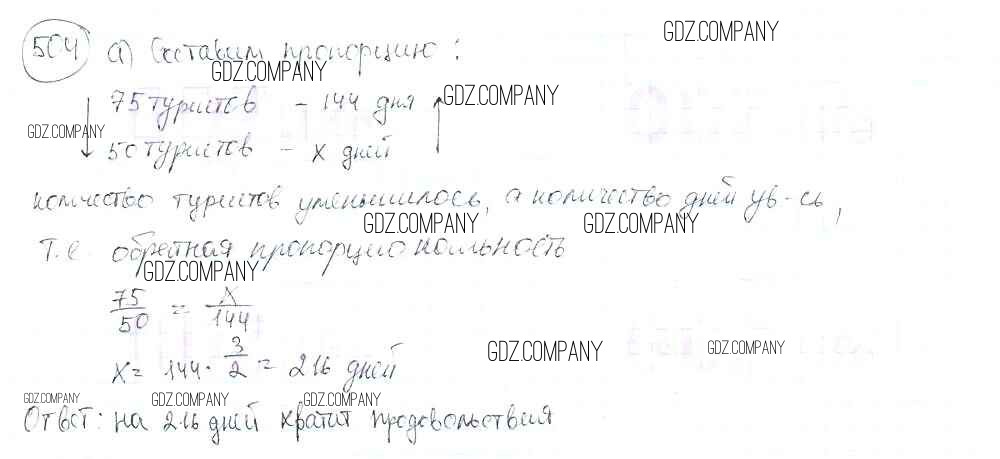 GDZ.COMPANY
504 а) Составим пропорцию:
GDZ.COMPANY
75 туристов - 144 дня GDZ.COMPANY
GDZ.COMPANY
50 туристов - x дней
количество туристов уменьшилось, а количество дней ув-сь,
GDZ.COMPANY GDZ.COMPANY
т.е. обратная пропорциональность
GDZ.COMPANY
75/50 = x/144
GDZ.COMPANY GDZ.COMPANY
x = 144 · 3/2 = 216 дней
GDZ.COMPANY GDZ.COMPANY GDZ.COMPANY
Ответ: на 216 дней хватит продовольствия